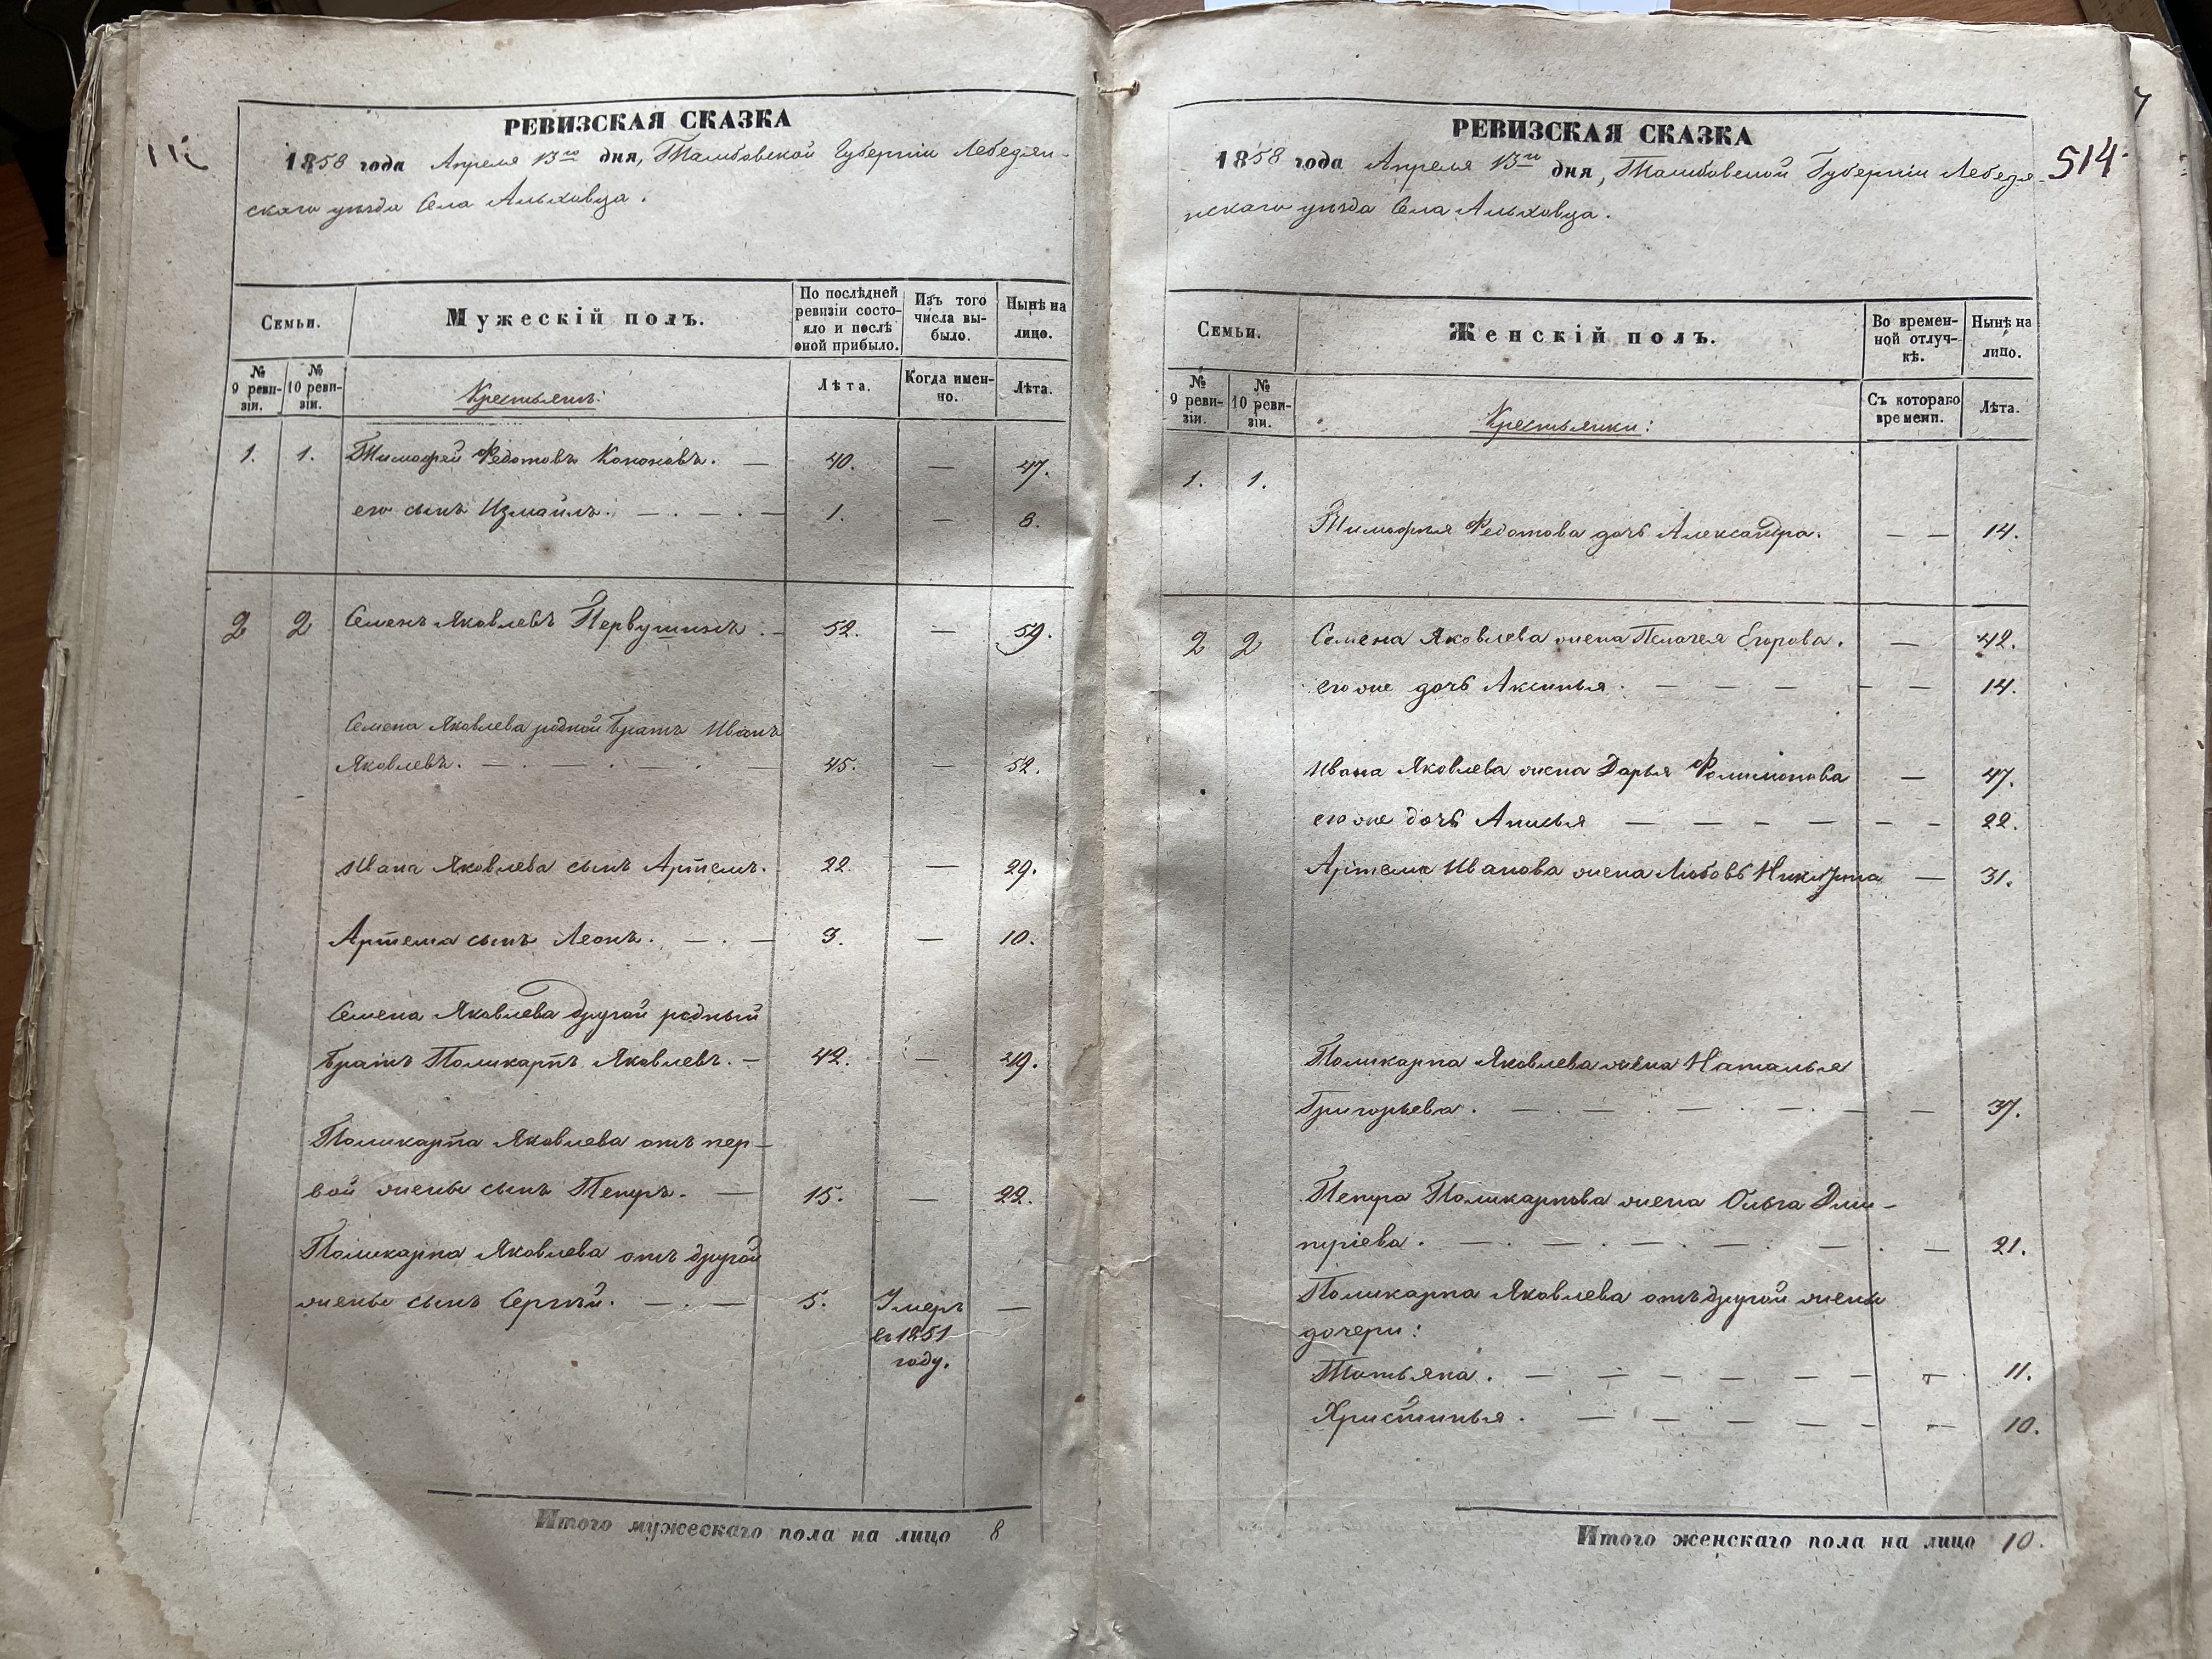 РЕВИЗСКАЯ СКАЗКА
1858 года Апреля 13го дня, Тамбовской Губерніи Лебедян-
скаго уѣзда Села Альховца.
Семьи.
Мужескій полъ.
По послѣдней
ревизіи состо-
яло и послѣ
оной прибыло.
Изъ того
числа вы-
было.
Нынѣ на
лицо.
№
9 реви-
зіи.
№
10 реви-
зіи.
Крестьянъ:
Лѣта.
Когда имен-
но.
Лѣта.
1. 1. Тимофей Федотовъ Кононовъ. — 40. — 47.
его сынъ Измаилъ. — . — . — 1. — 8.
2 2 Семенъ Яковлевъ Первушинъ. — 52. — 59.
Семена Яковлева родной братъ Иванъ
Яковлевъ. — . — . — . — 45. — 52.
Ивана Яковлева сынъ Артемъ. 22. — 29.
Артема сынъ Леонъ. — . — 3. — 10.
Семена Яковлева другой родный
братъ Поликарпъ Яковлевъ. — 42. — 49.
Поликарпа Яковлева отъ пер-
вой жены сынъ Петръ. — 15. — 22.
Поликарпа Яковлева отъ другой
жены сынъ Сергѣй. — . — 5. Умеръ —
въ 1851
году.
Итого мужескаго пола на лицо 8
7
514.
РЕВИЗСКАЯ СКАЗКА
1858 года Апреля 13го дня, Тамбовской Губерніи Лебедя-
нскаго уѣзда Села Альховца.
Семьи.
Женскій полъ.
Во времен-
ной отлуч-
кѣ.
Нынѣ на
лицо.
№
9 реви-
зіи.
№
10 реви-
зіи.
Крестьянки:
Съ котораго
времени.
Лѣта.
1. 1.
Тимофея Федотова дочь Александра. — — 14.
2 2 Семена Яковлева жена Пелагея Егорова. — 42.
его же дочь Аксинья. — — — — — 14.
Ивана Яковлева жена Дарья Филимонова — 47.
его же дочь Анисья — — — — — — 22.
Артема Иванова жена Любовь — 31.
Поликарпа Яковлева жена Наталья
Григорьева. — . — . — . — . — — 37.
Петра Поликарпова жена Ольга Дми-
тріева. — . — . — . — . — . — 21.
Поликарпа Яковлева отъ другой жены
дочери:
Татьяна. — — — — — — — 11.
Христинья. — — — — — — 10.
Итого женскаго пола на лицо 10.